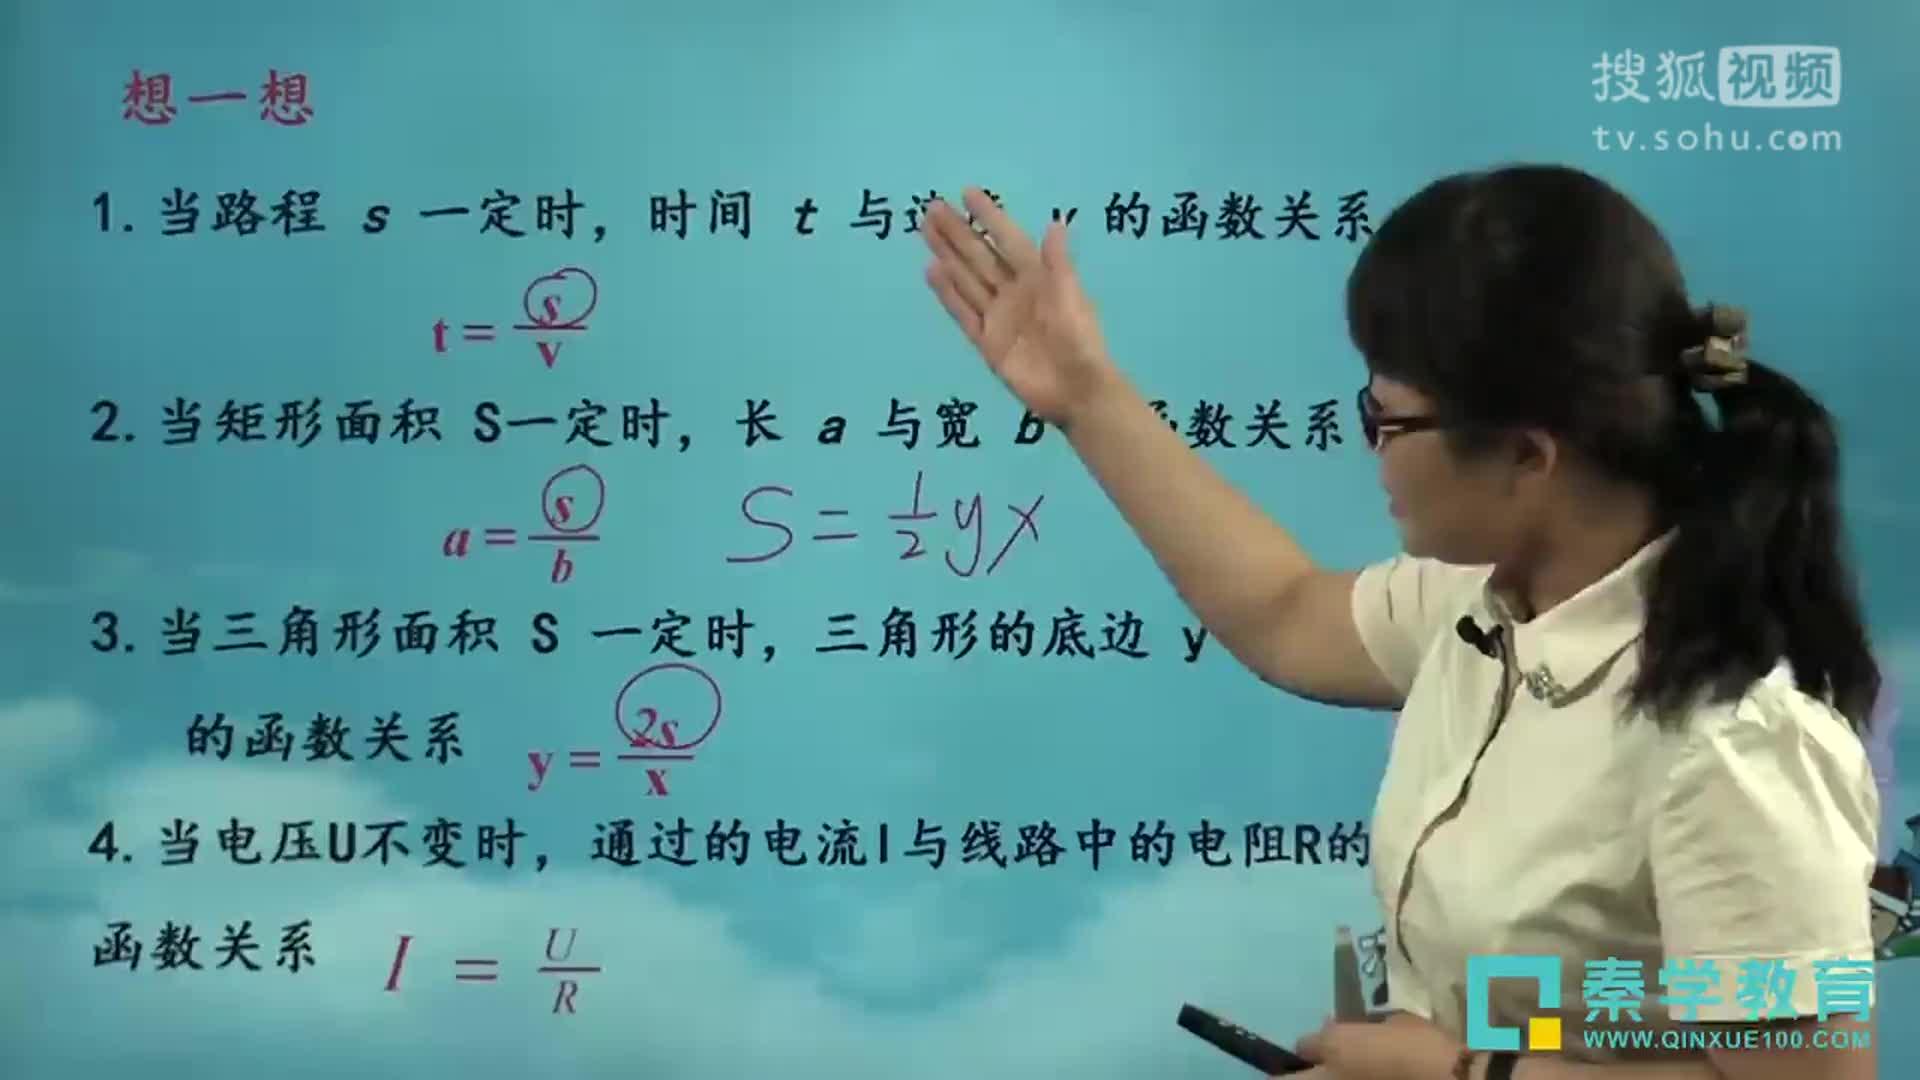 想一想
搜狐视频
tv.sohu.com
1. 当路程 s 一定时，时间 t 与 v 的函数关系
t = s/v
2. 当矩形面积 S一定时，长 a 与宽 b 函数关系
a = s/b
S = 1/2 yx
3. 当三角形面积 S 一定时，三角形的底边 y
的函数关系
y = 2s/x
4. 当电压U不变时，通过的电流I与线路中的电阻R的
函数关系
I = U/R
秦学教育
WWW.QINXUE100.COM